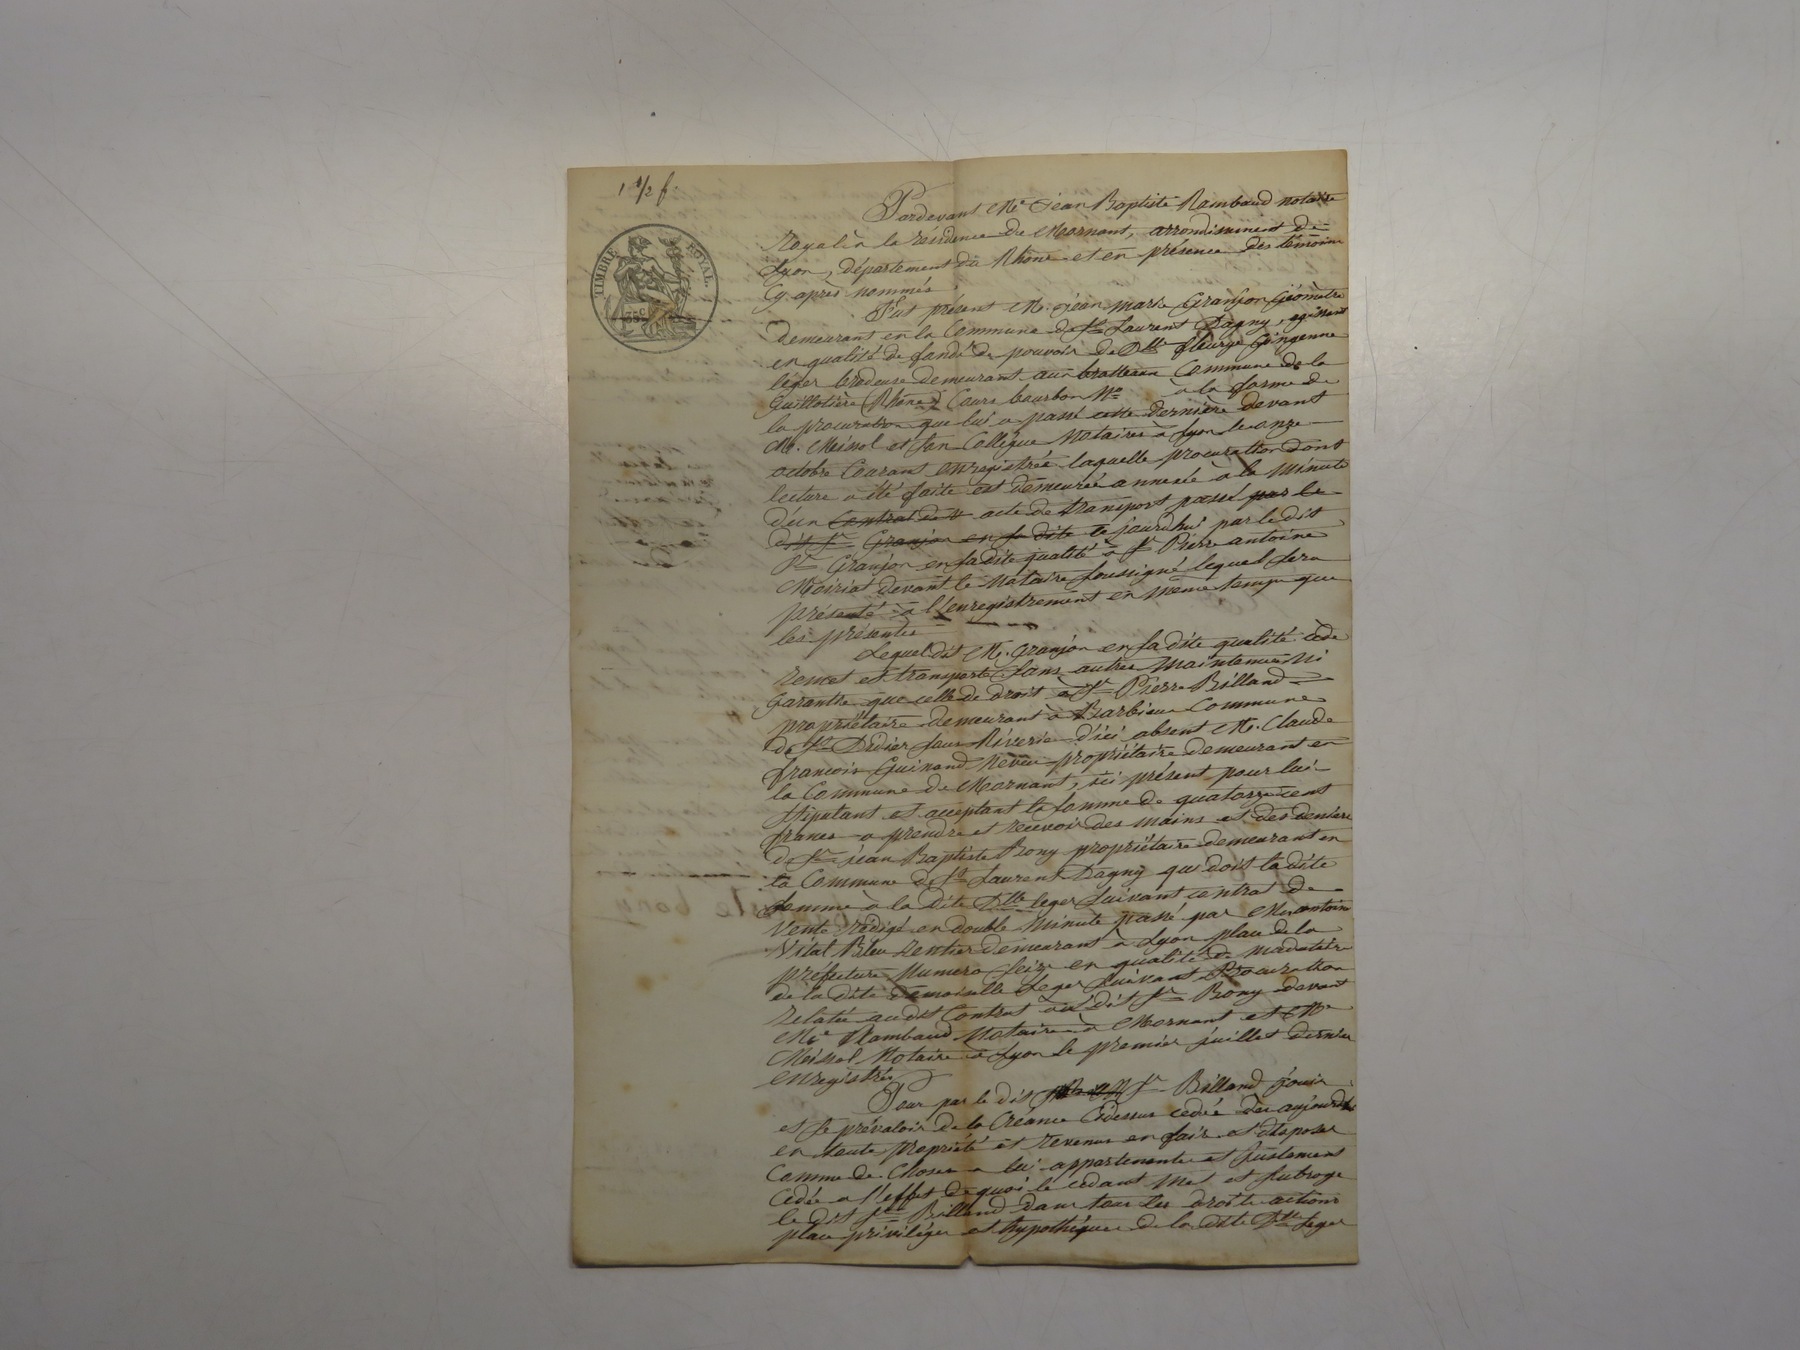 1 1/2 f.
TIMBRE ROYAL.
35 c
Pardevant Me jean Baptiste Rambaud notaire
royal à la résidence de Mornant, arrondissement de
Lyon, département du Rhône et en présence des témoins
Cy après nommés.
Fut présent M. jean marie Granjon Géomètre
demeurant en la Commune de St Laurent Dagny, agissant
en qualité de fondé de pouvoir de Dlle fleurye
léger brodeuse demeurant aux brotteaux Commune de la
Guillotière (Rhône) Cours bourbon No à la forme de
la procuration que lui a passé cette dernière devant
Me. Meissol et Son Collègue Notaires à Lyon le onze
octobre Courant enregistrée laquelle procuration dont
lecture a été faite est demeurée annexée à la minute
d'un Contrat de v acte de transport passé par le
dit Sr Granjon en sa dite ce jourdhui par le dit
Sr Granjon en sa dite qualité à Sr Pierre antoine
Moiriat devant le Notaire Soussigné lequel sera
présenté à l'enregistrement en même temps que
les présentes
Lequel dit M. Granjon en sa dite qualité cède
remet et transporte Sans autre Maintenue ni
Garantie que celle de droit à Sr Pierre Billand
propriétaire demeurant à Barbieu Commune
de St Didier Sous Riverie d'ici absent M. Claude
françois Guinand Neveu propriétaire demeurant en
la Commune de Mornant, ici présent pour lui
Stipulant et acceptant la Somme de quatorze cent
francs a prendre et recevoir des mains et des deniers
de Sr jean Baptiste Bony propriétaire demeurant en
la Commune de St Laurent Dagny qui doit la dite
Somme à la dite Dlle leger Suivant contrat de
Vente rédigé en double Minute passé par Me antoine
Vital Bleu rentier demeurant à Lyon place de la
préfecture Numero Seize en qualité de mandataire
de la dite Demoiselle Leger Suivant Procuration
relatée audit Contrat au dit Sr Bony devant
Me Rambaud Notaire à Mornant et Me
Meissol Notaire à Lyon le premier juillet dernier
enregistré
Pour par le dit Sr Billand jouir
et Se prévaloir de la Créance Cidessus cedée des aujourdhui
en toute propriété et revenus en faire et disposer
Comme de Chose a lui appartenante et justement
Cédée a l'effet de quoi le cédant met et Subroge
le dit Sr Billand dans tous les droits actions
place privilèges et hypothèques de la dite Dlle Leger